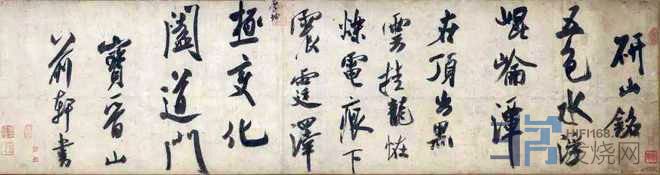 研山銘
五色水浮
崐崘潭
在頂出黑
雲挂龍怪
爍電痕下
震霆澤
厚坤
極變化
闔道門
寶晉山
前軒書
发烧网